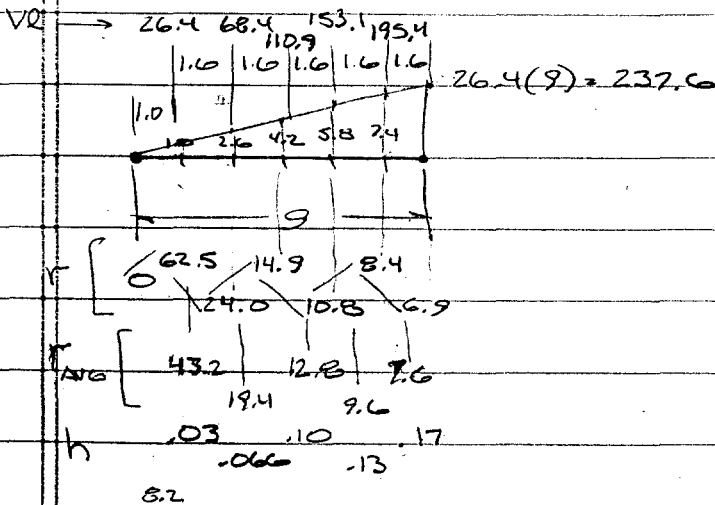 VL → 26.4 68.4 153.1 195.4
110.9
1.6 1.6 1.6 1.6 1.6 26.4(9) = 237.6
1.0
1.0 2.6 4.2 5.8 7.4
9
r 0 62.5 14.9 8.4
24.0 10.8 6.9
r AVG 43.2 12.8 7.6
19.4 9.6
h .03 .10 .17
.066 .13
8.2